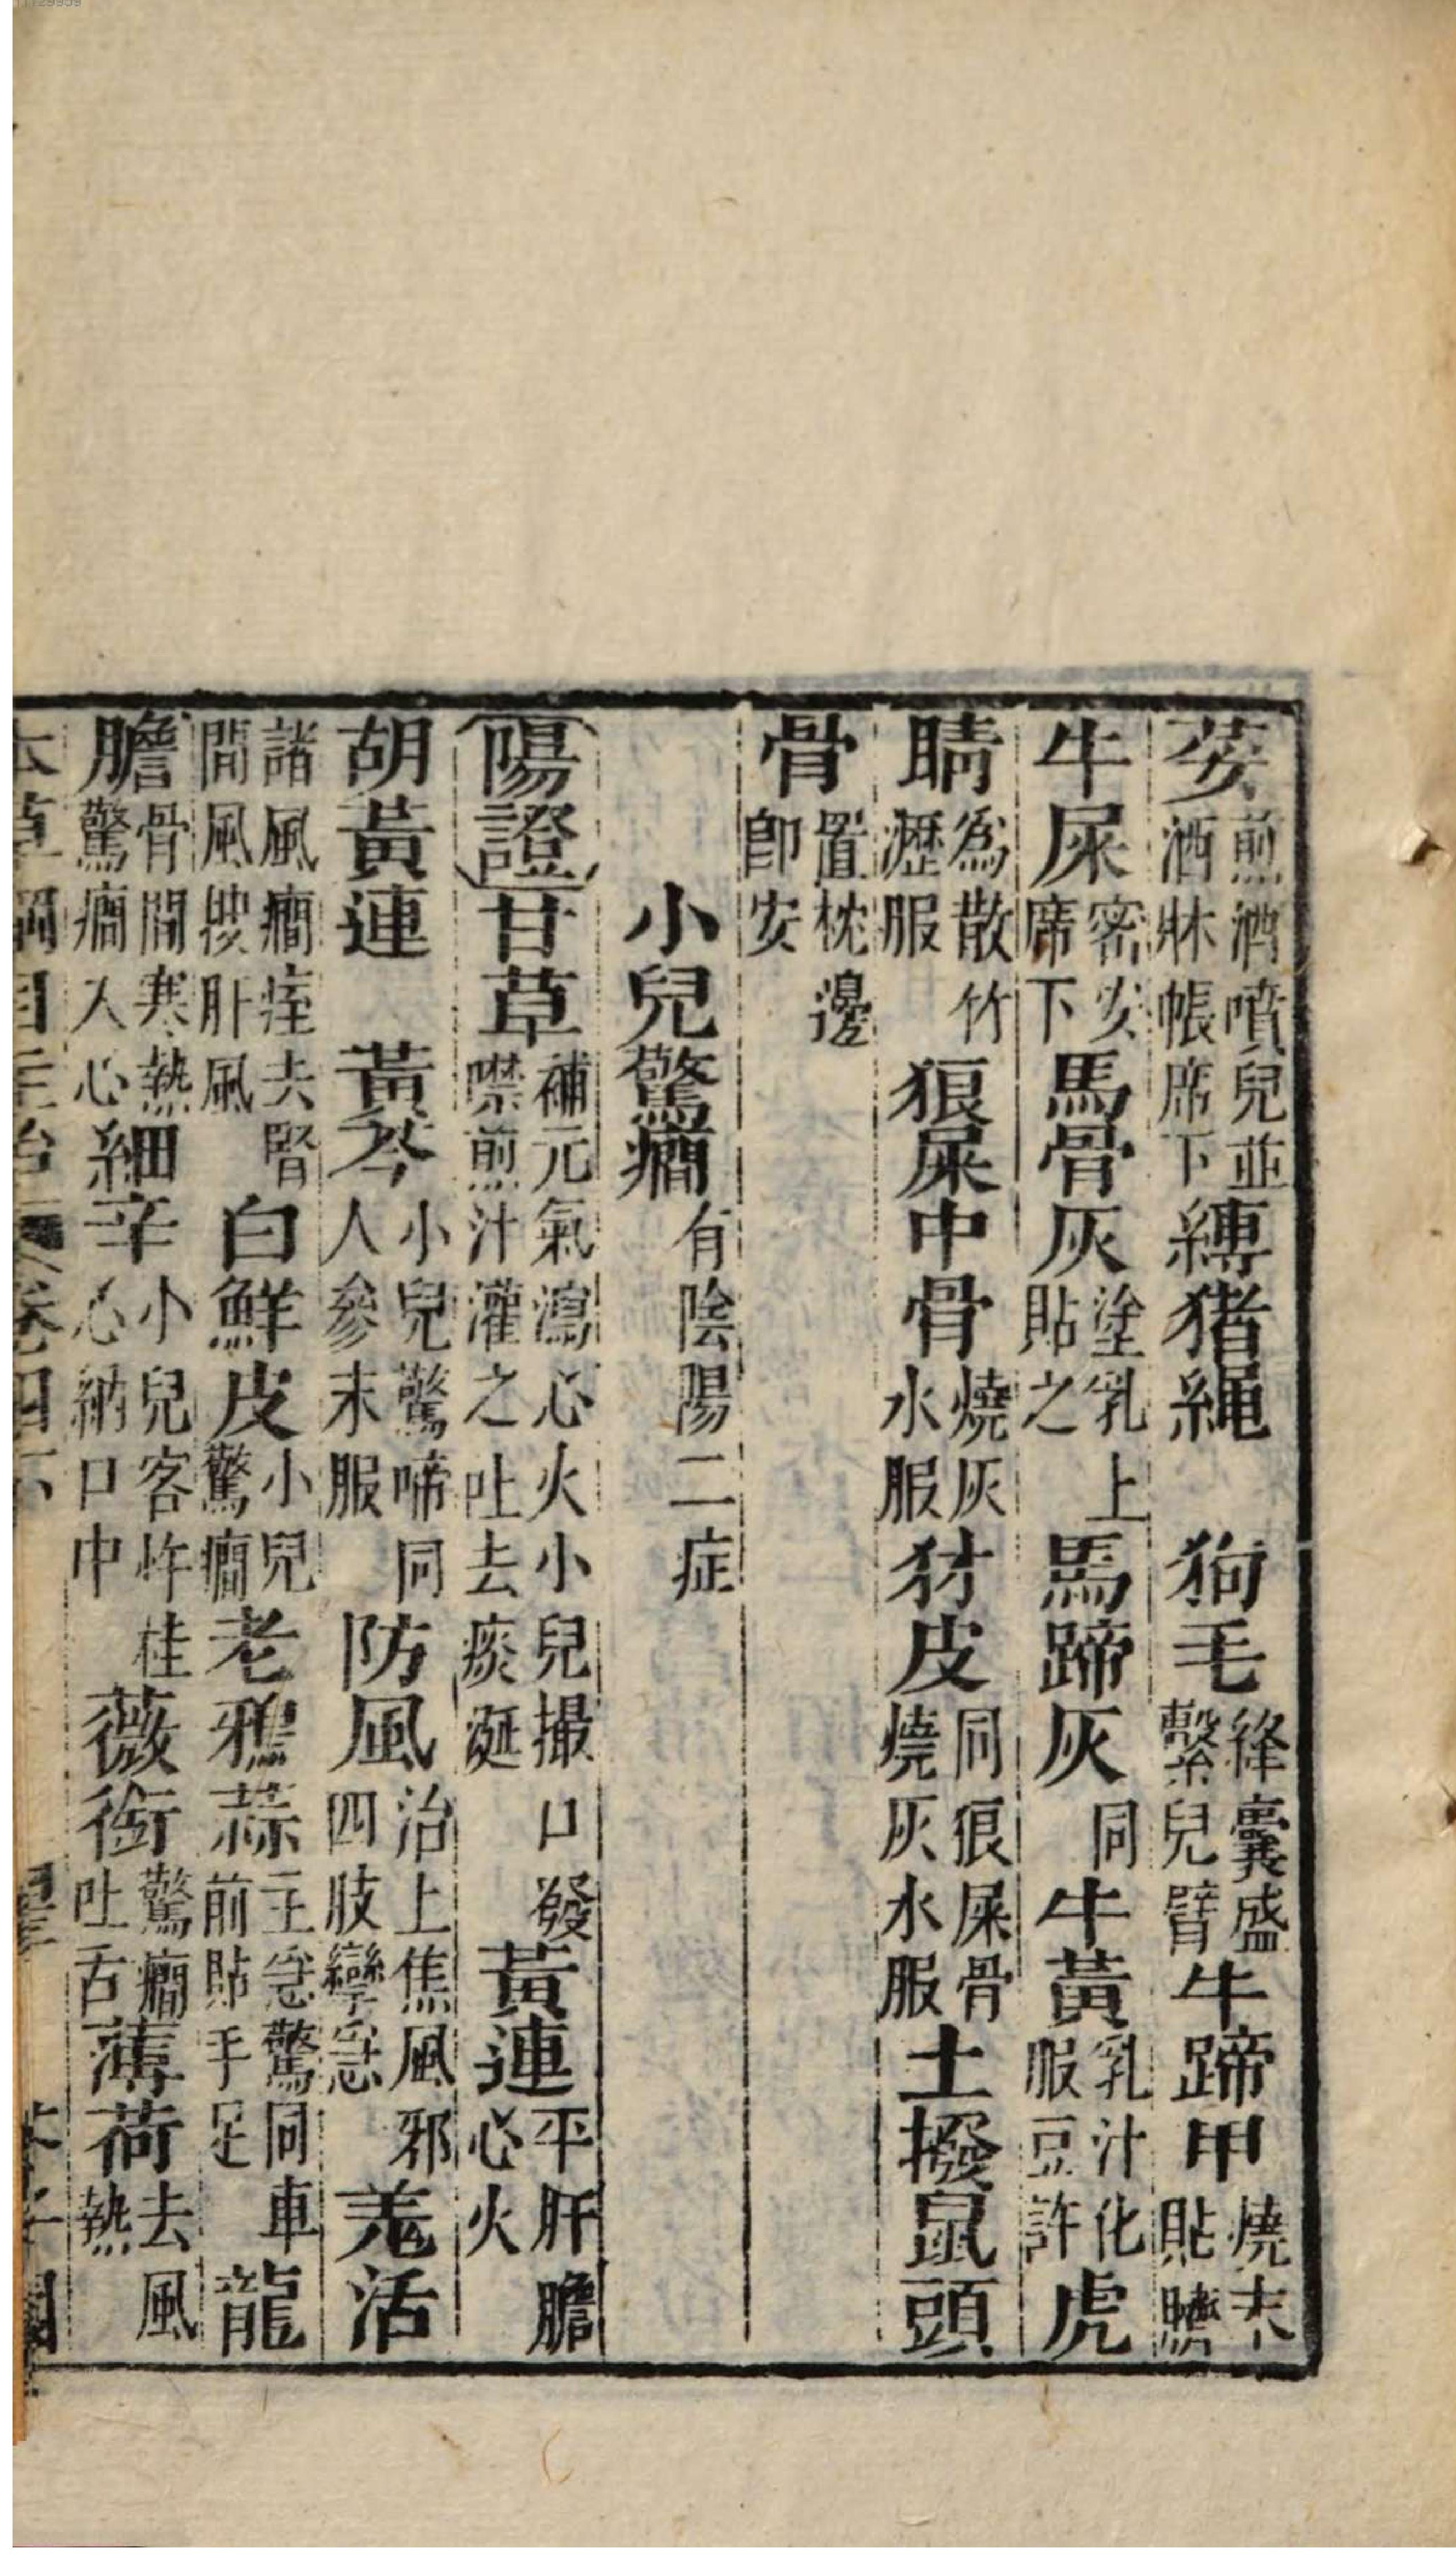 荽煎酒噴兒並酒牀帳席下縛猪繩　狗毛絳囊盛繫兒臂牛蹄甲燒末貼臍
牛屎密安席下馬骨灰塗乳上貼之馬蹄灰同牛黃乳汁化服豆許虎
睛為散竹瀝服狼屎中骨燒灰水服犲皮同狼屎骨燒灰水服土撥鼠頭
骨置枕邊卽安
小兒驚癇有陰陽二症
陽證甘草補元氣瀉心火小兒撮口發噤煎汁灌之吐去痰涎黃連平肝膽心火
胡黃連　黃芩小兒驚啼同人參末服防風治上焦風邪四肢攣急羗活
諸風癇痓去腎間風搜肝風白鮮皮小兒驚癇老鴉蒜主急驚同車前貼手足龍
膽骨間寒熱驚癇入心細辛小兒客忤桂心納口中薇銜驚癇吐舌薄荷去風熱
本草綱目主治　卷四下